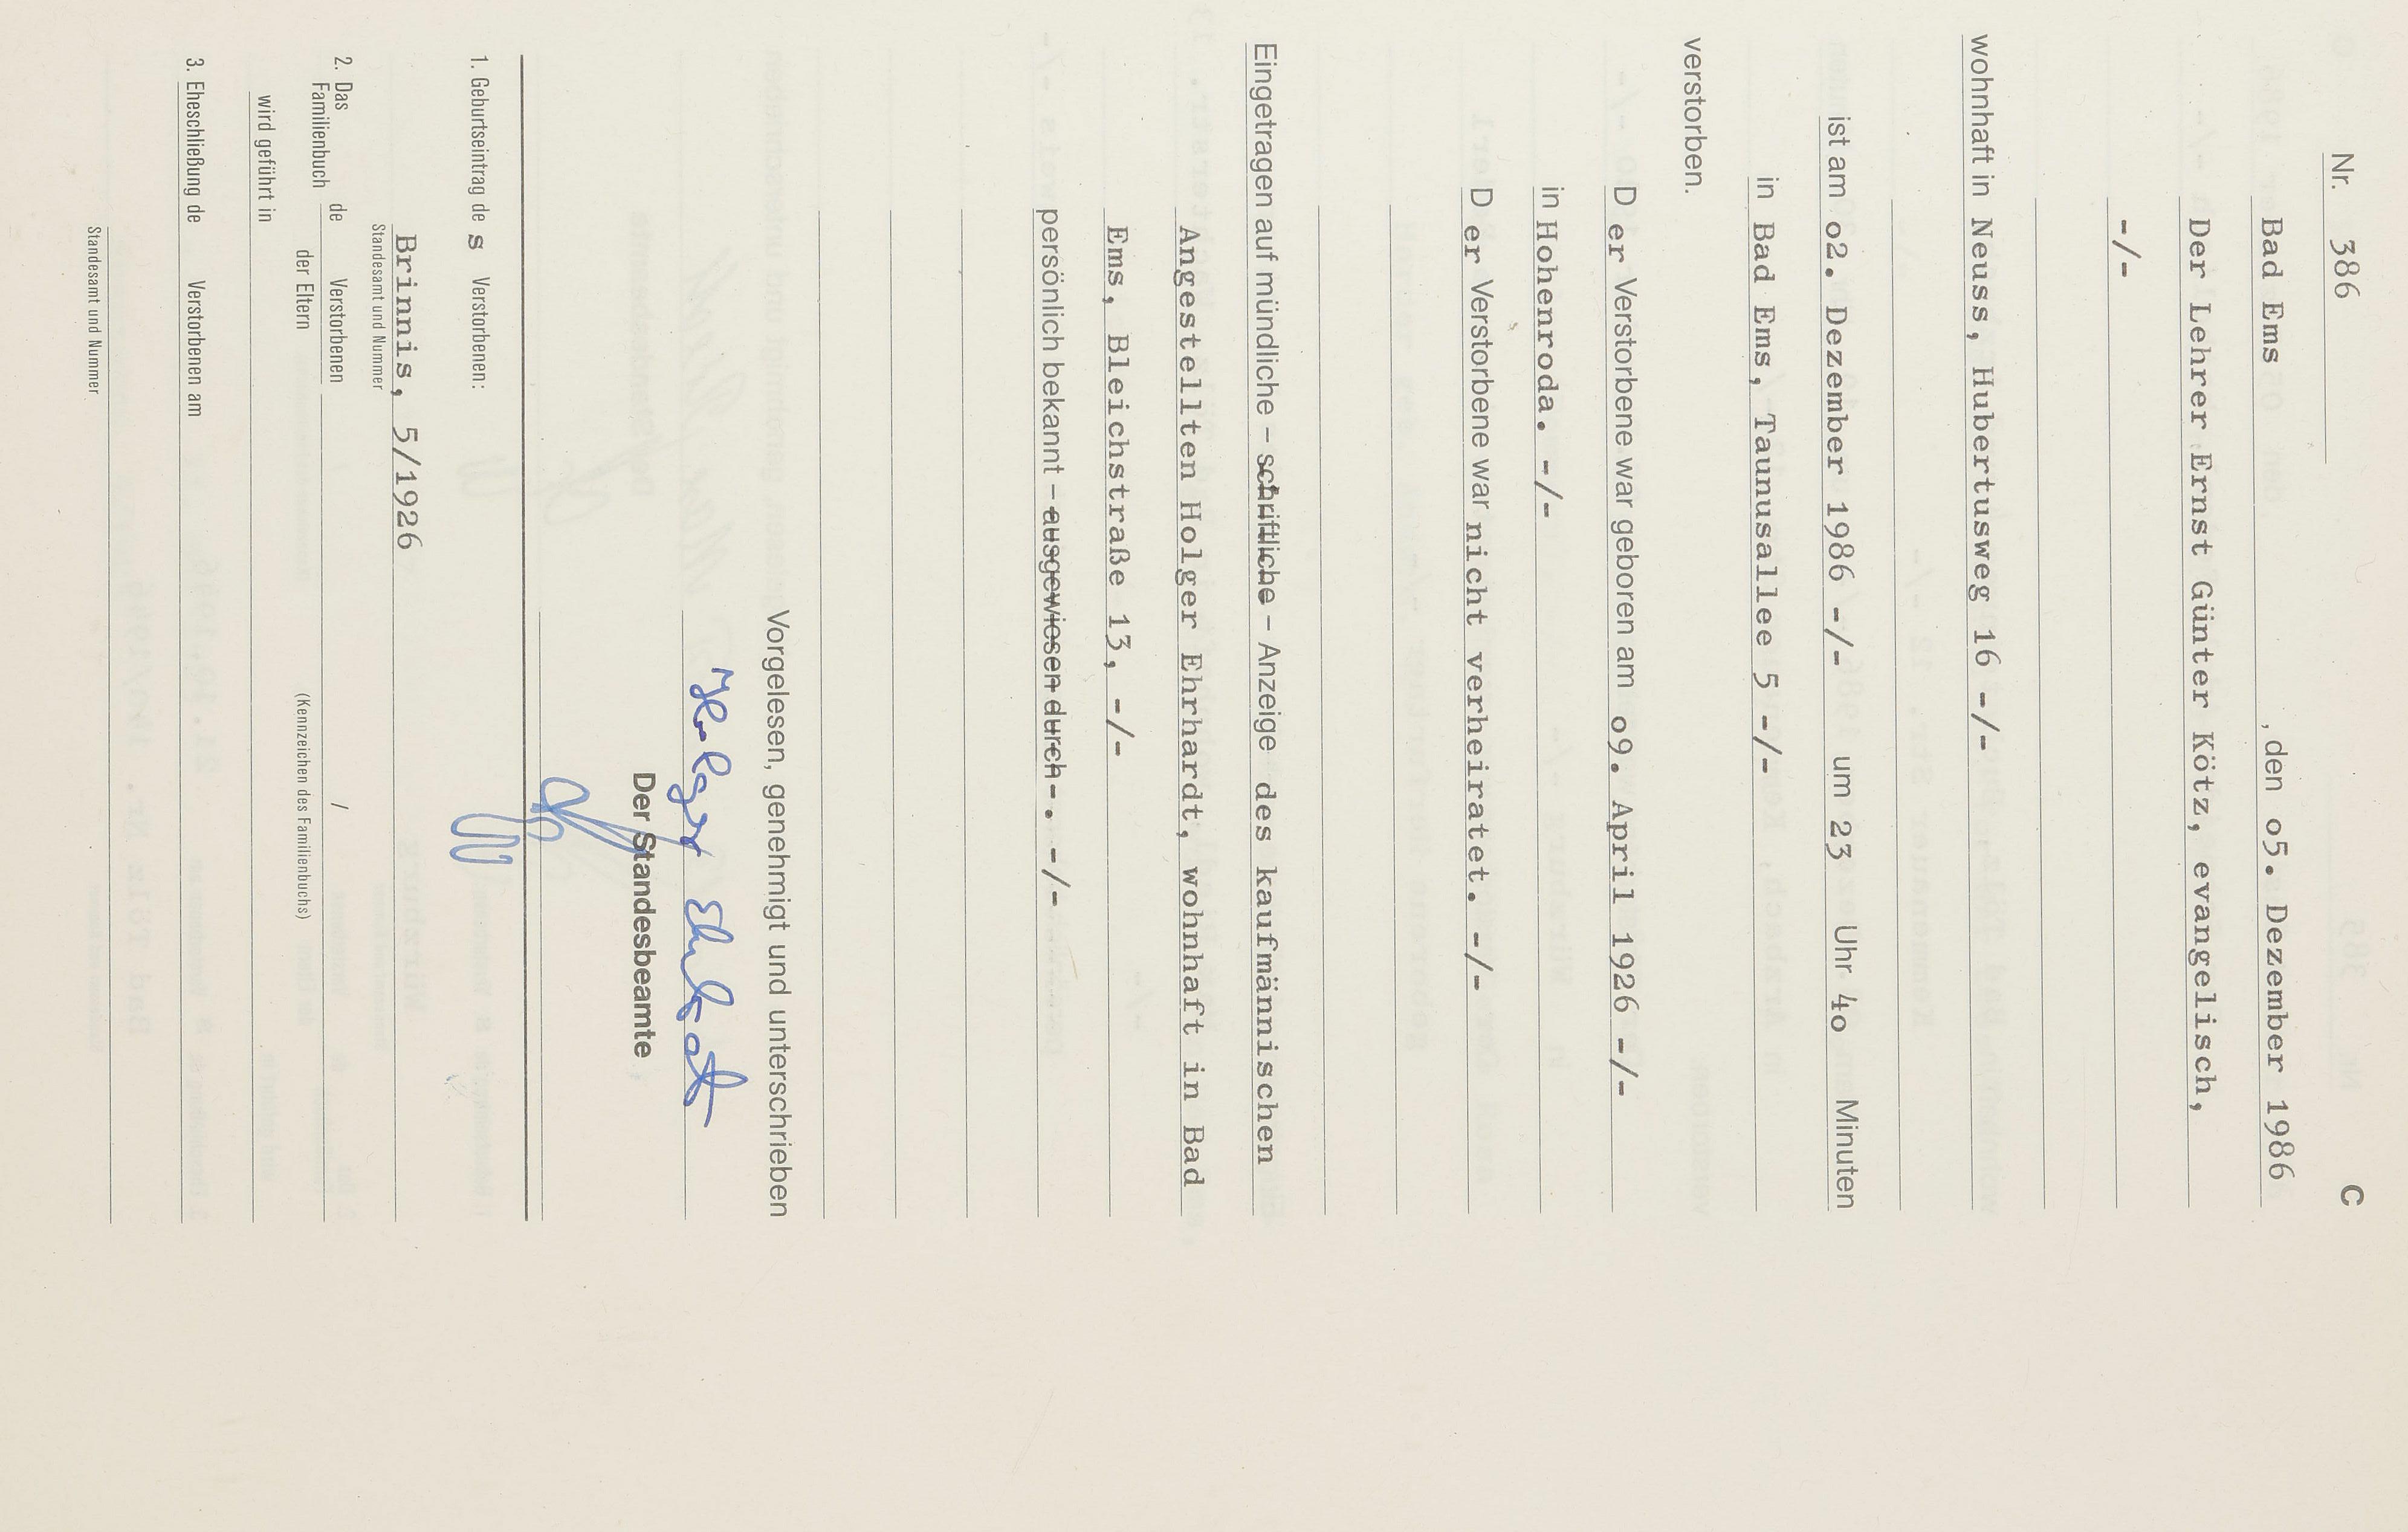 C
Nr. 386
Bad Ems , den o5. Dezember 1986
Der Lehrer Ernst Günter Kötz, evangelisch,
-/-
wohnhaft in Neuss, Hubertusweg 16 -/-
ist am o2. Dezember 1986 -/- um 23 Uhr 4o Minuten
in Bad Ems, Taunusallee 5 -/-
verstorben.
D er Verstorbene war geboren am o9. April 1926 -/-
in Hohenroda. -/-
D er Verstorbene war nicht verheiratet. -/-
Eingetragen auf mündliche – schriftliche – Anzeige des kaufmännischen
Angestellten Holger Ehrhardt, wohnhaft in Bad
Ems, Bleichstraße 13, -/-
persönlich bekannt – ausgewiesen durch -. -/-
Vorgelesen, genehmigt und unterschrieben
Holger Ehrhardt
Der Standesbeamte
1. Geburtseintrag de s Verstorbenen:
Brinnis, 5/1926
Standesamt und Nummer
2. Das Familienbuch de Verstorbenen /
der Eltern (Kennzeichen des Familienbuchs)
wird geführt in
3. Eheschließung de Verstorbenen am
Standesamt und Nummer